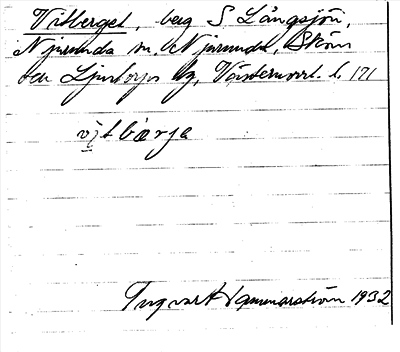 Vitberget, berg S Långsjön,
Njurunda sn. Njurunda, Sköns
och Ljustorps tg, Västernorrl. l. 171
vi̯tbærja
Ingvar Hammarström 1932